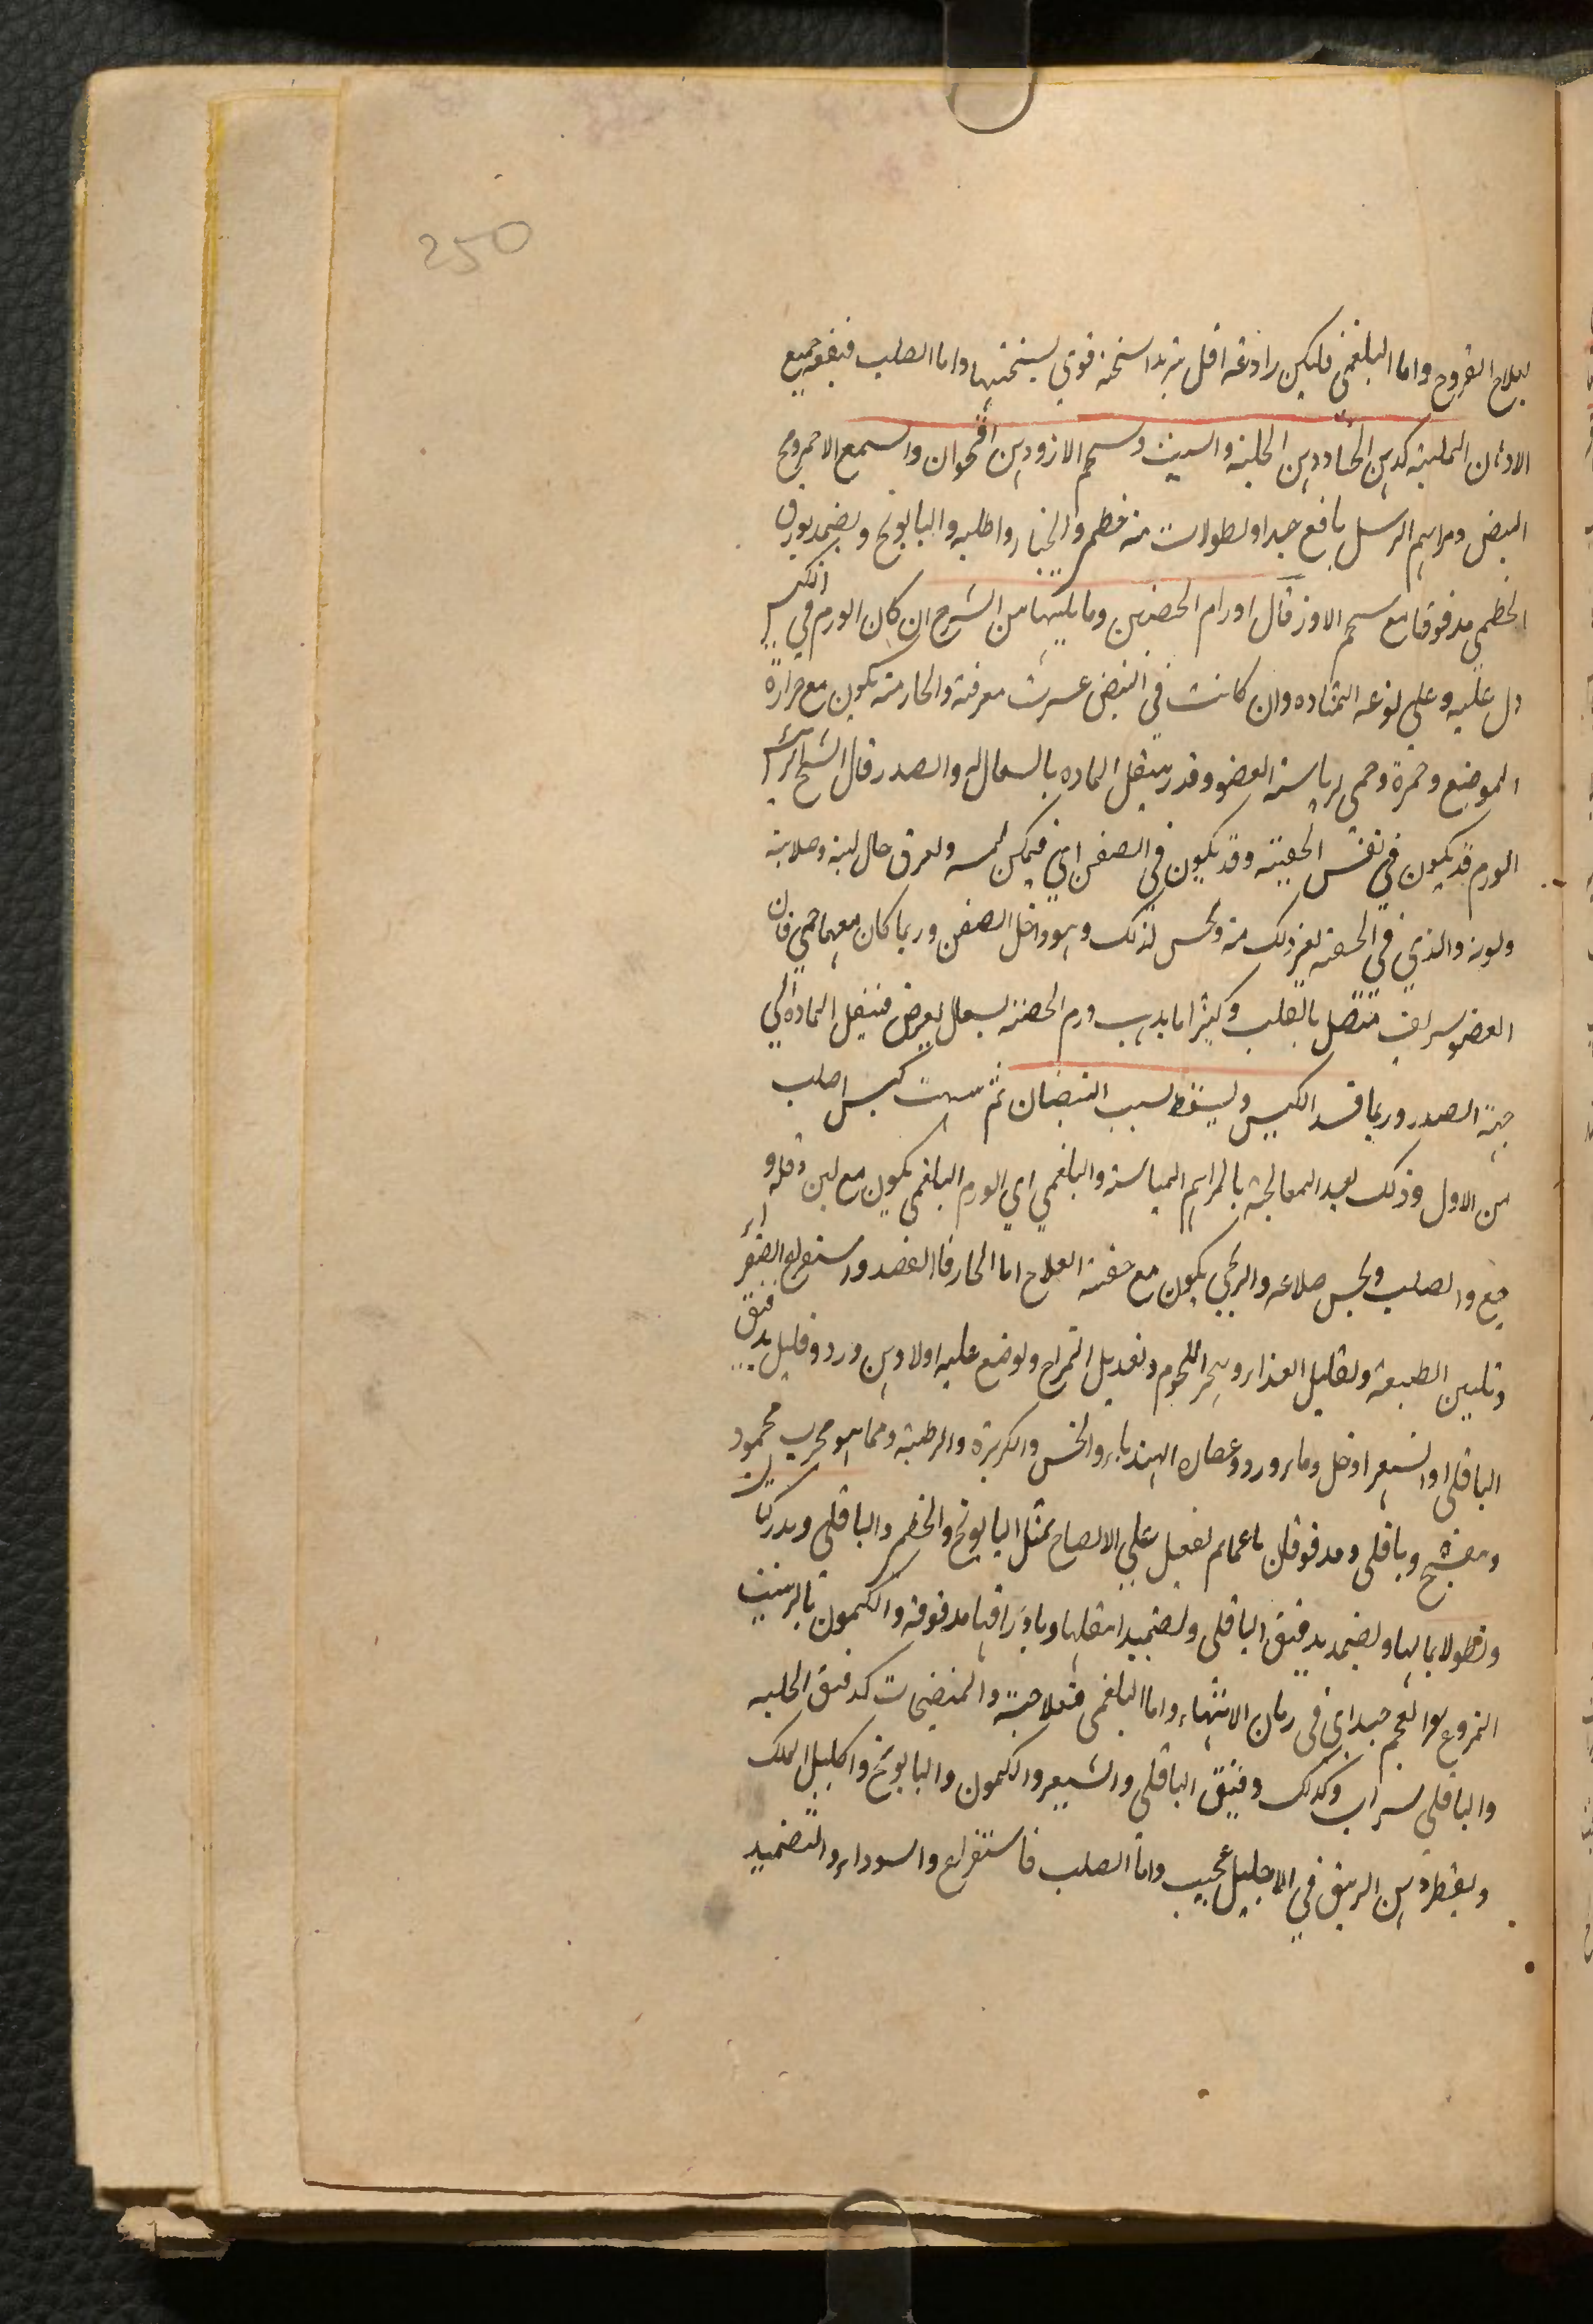 250
بعلاج القروح واما البلغمى فليكن رادعته اقل تبريدا سخنه قوي لسخنتها واما الصلب فينفعه جميع
الادهان الملينة كدهن الحنا ودهن الحلبة والسبت وشحم الاوز ودهن اقحوان والشمع الاحمر ومخ
البيض ومراهم الرسل نافع جيدا ونطولات من خطمى والخيار والحلبه والبابونج ويضمد بورق
الخطمى مدقوقا مع شحم الاوز قال اورام الخصيتين وما يليهما من الشرح ان كان الورم في الكيس
دل عليه وعلى نوعه المشاهده وان كانت في البيض عسرت معرفته والحار منه يكون مع حرارة
الموضع وحمرة وحمى لرياسة العضو وقد ينتقل الماده بالسعال الى الصدر قال الشيخ الرئيس
الورم قد يكون في نفس الخصيه وقد يكون في الصفن اي فيمكن لمسه ولعرق حال لينه وصلابته
ولونه والذي في الخصيه لغير ذلك منه ويحس لذلك وهو داخل الصفن وربما كان معهما حمى فان
العضو شريف متصل بالقلب وكثيرا ما يذهب ورم الخصيه بسعال يعرض فينتقل الماده الي
جهة الصدر وربما فسد الكيس ويسقط لسبب البيضتان ثم ينبت كيس اصلب
من الاول وذلك بعد المعالجة بالمراهم المياسة والبلغمي اي الورم البلغمي يكون مع لين وقلة و
جع والصلب ويحس صلابته والريحي يكون مع خفة العلاج اما الحار فالفصد واستفراغ الصفراء
وتليين الطبيعة وتقليل الغذاء وهجر اللحوم وتعديل المزاج ويوضع عليه اولا دهن ورد وقليل بدقيق
الباقلى او الشعير او خل وماء ورد وعصارة الهندباء والخس والكزبرة والرطبة ومما هو مجرب محمود
وبنفسج وباقلى ومدقوقان ناعما ثم لفعل على الانضاج بمثل البابونج والخطمى والباقلى وبدركتان
ونطولا بمائها ويضمد بدقيق الباقلى ولضميد بثقلها وباوراقها مدقوقة والكمون بالزبيب
المنزوع العجم جيد اي في زمان الانتهاء واما البلغمى فعلاجه والمنضجات كدقيق الحلبه
والباقلى بشراب وكذلك دقيق الباقلى والشعير والكمون والبابونج واكليل الملك
ويقطر دهن الزيبق في الاحليل عجيب واما الصلب فاستفراغ والسوداء والتضميد